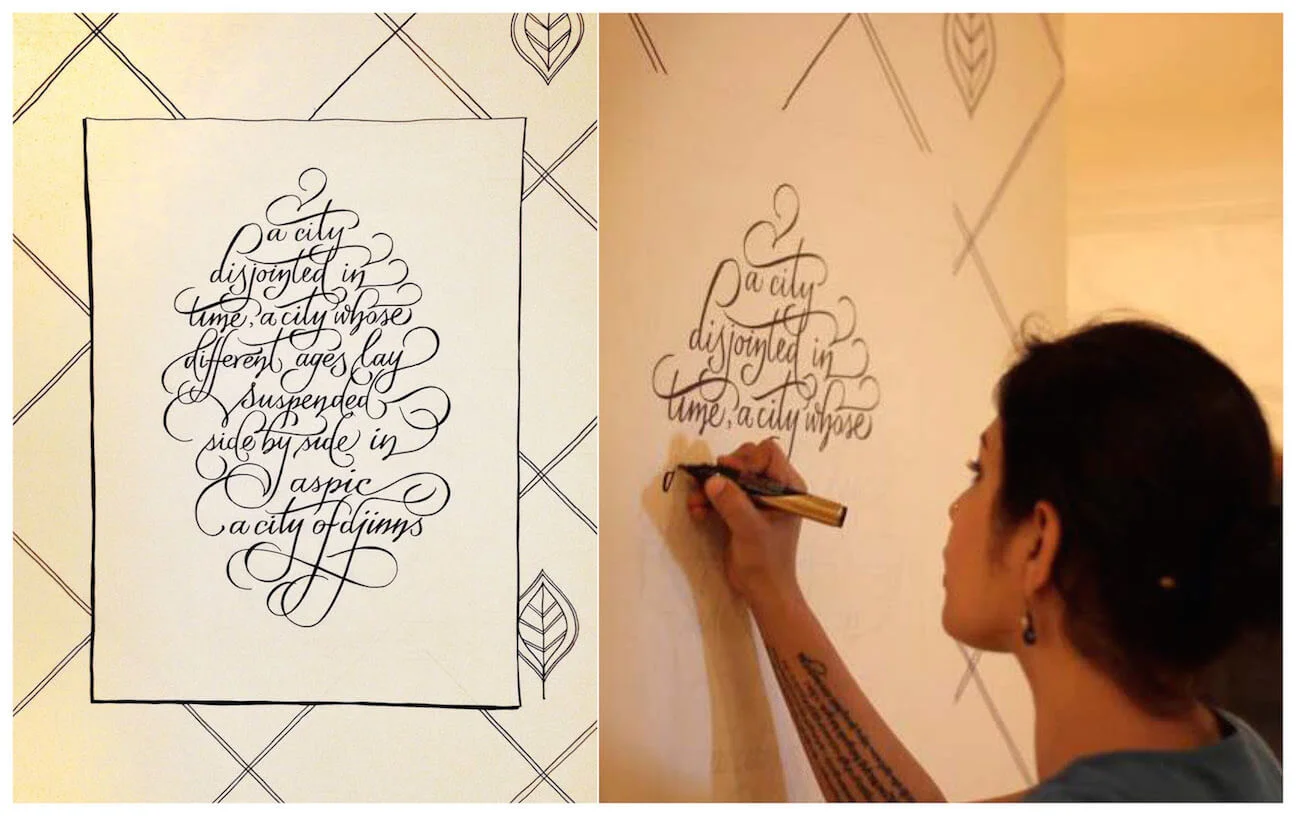 a city
disjointed in
time, a city whose
different ages lay
suspended
side by side in
aspic
a city of djinns
a city
disjointed in
time, a city whose